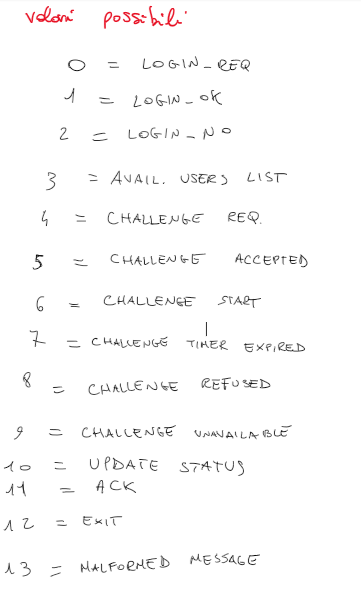 valori possibili
0 = LOGIN_REQ
1 = LOGIN_OK
2 = LOGIN_NO
3 = AVAIL. USERS LIST
4 = CHALLENGE REQ.
5 = CHALLENGE ACCEPTED
6 = CHALLENGE START
7 = CHALLENGE TIMER EXPIRED
8 = CHALLENGE REFUSED
9 = CHALLENGE UNAVAILABLE
10 = UPDATE STATUS
11 = ACK
12 = EXIT
13 = MALFORMED MESSAGE